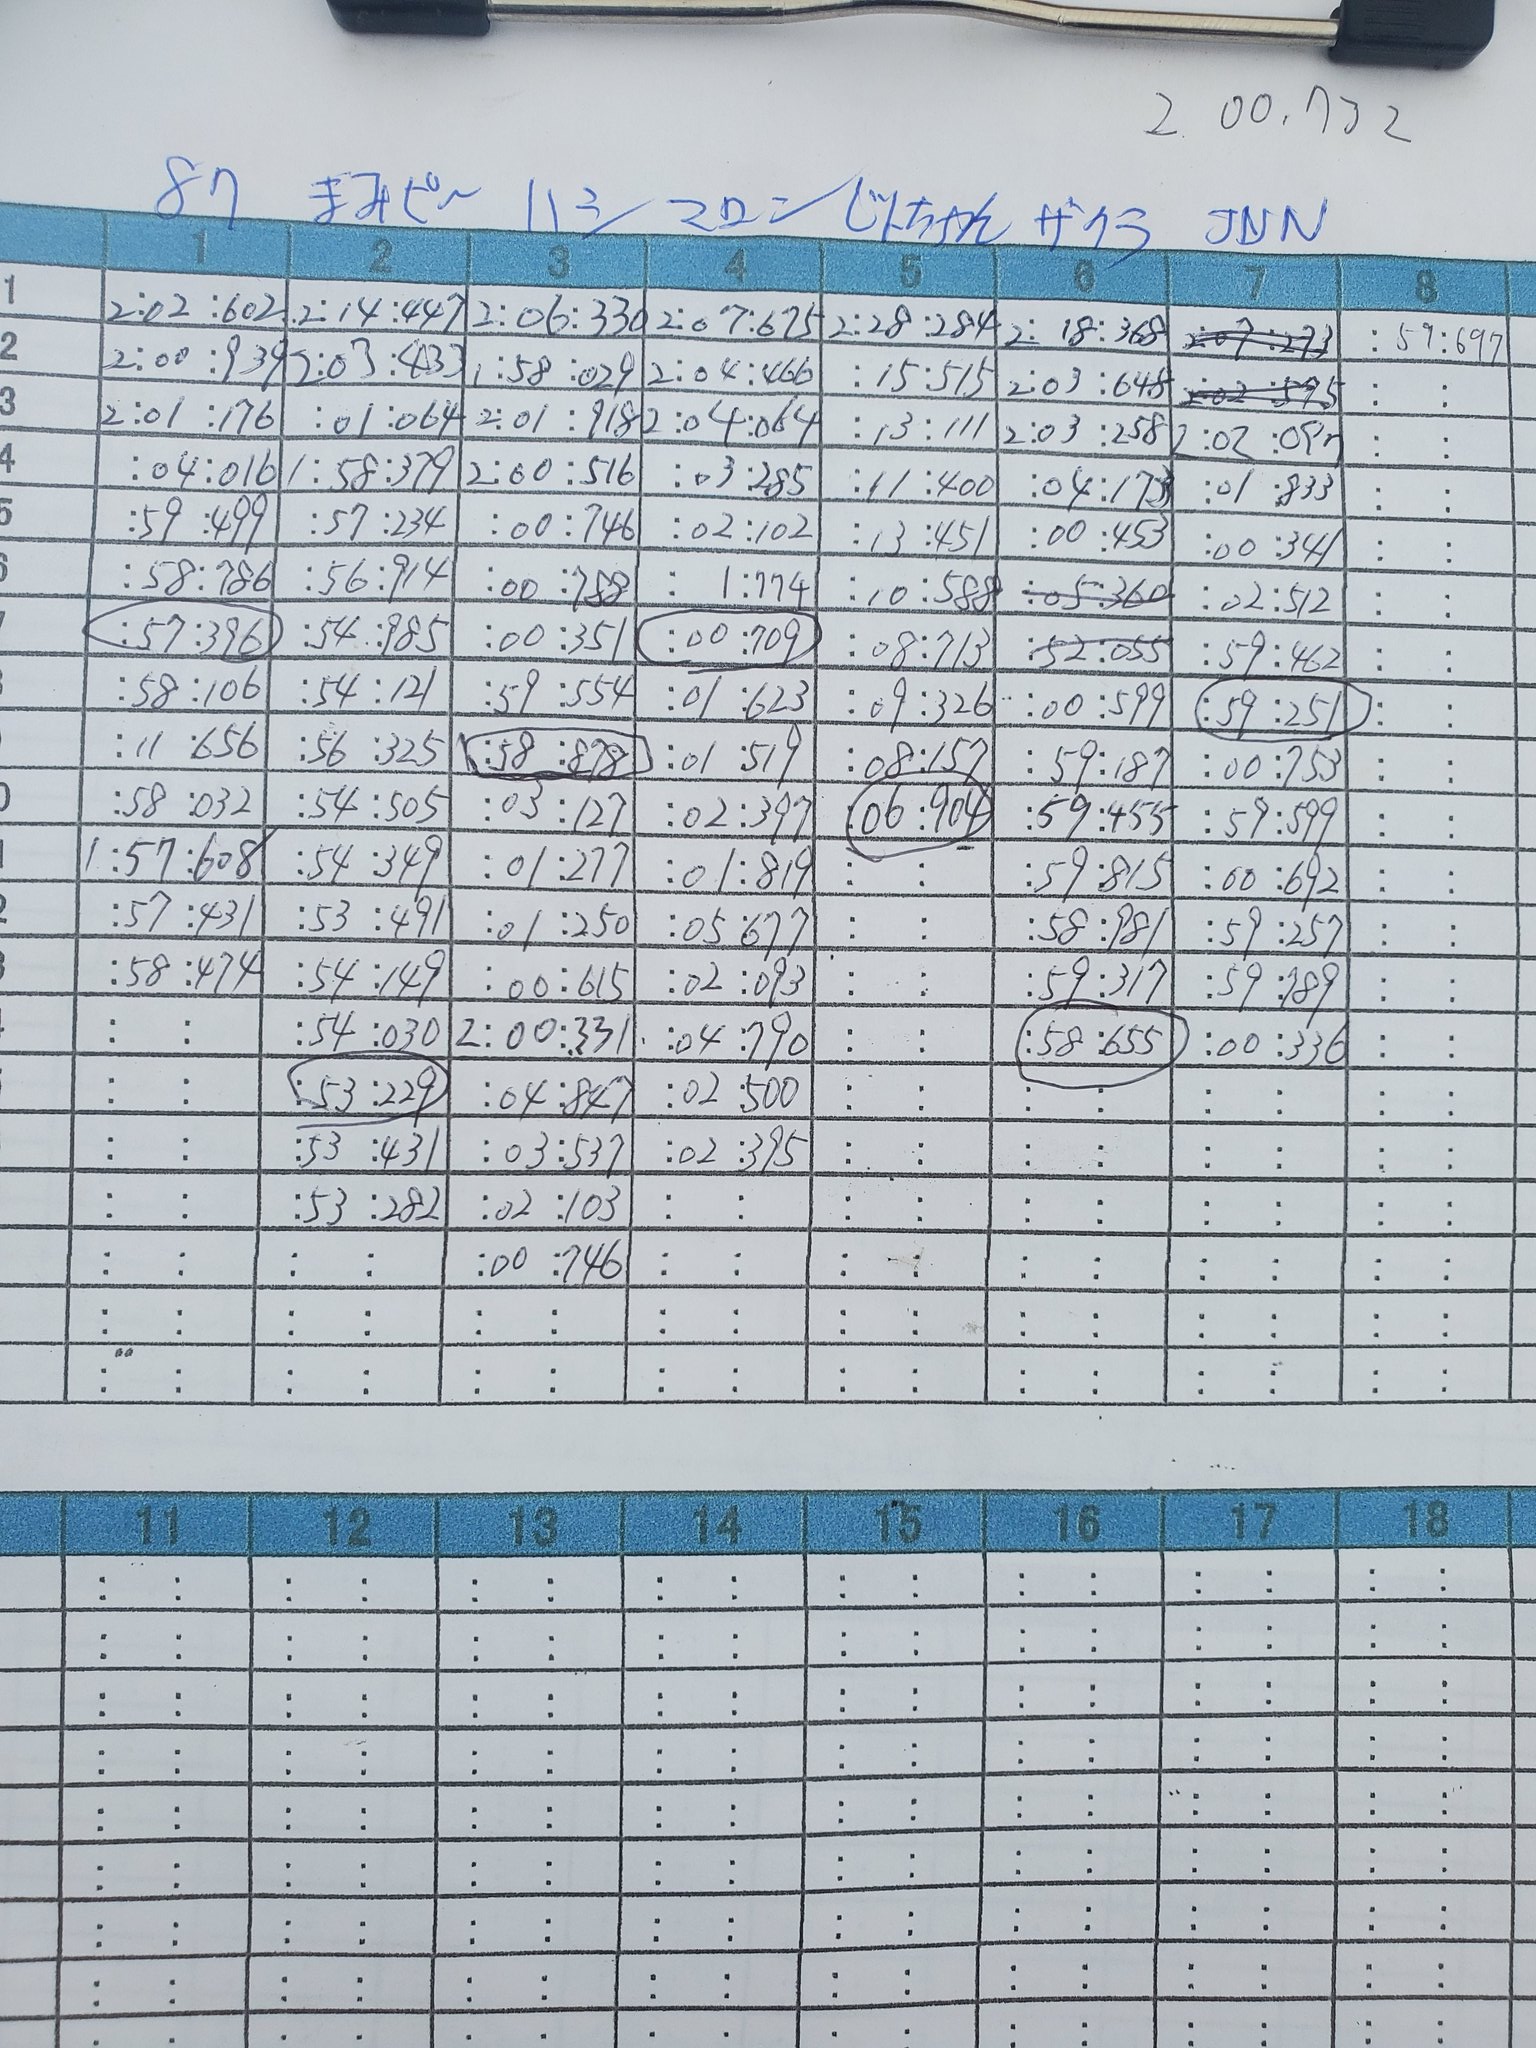 2 00.732
87 まみピー ハミ マロン じいちゃん ザクラ JNN
1 2 3 4 5 6 7 8
1 2:02:602 2:14:447 2:06:330 2:07:675 2:28:284 2:18:368 2:07:273 :59:697
2 2:00:939 2:03:433 1:58:029 2:04:466 :15:515 2:03:648 2:02:575 : :
3 2:01:176 :01:064 2:01:918 2:04:064 :13:111 2:03:258 : :
4 :04:016 1:58:379 2:00:516 :03:285 :11:400 :04:173 :01:833 : :
5 :59:499 :57:234 :00:746 :02:102 :13:451 :00:453 :00:341 : :
6 :58:786 :56:914 :00:788 :1:774 :10:588 :05:360 :02:512 : :
:57:396 :54:985 :00:351 :00:709 :08:713 :52:055 :59:462 : :
:58:106 :54:121 :59:554 :01:623 :09:326 :00:599 :59:251 : :
:11:656 :56:325 :58:878 :01:519 :08:157 :59:187 :00:753 : :
0 :58:032 :54:505 :03:127 :02:397 :06:904 :59:455 :59:599 : :
1 1:57:608 :54:349 :01:277 :01:819 : : :59:815 :00:692 : :
2 :57:431 :53:491 :01:250 :05:677 : : :58:981 :59:257 : :
3 :58:474 :54:149 :00:615 :02:093 : : :59:317 :59:789 : :
: : :54:030 2:00:331 :04:790 : : :58:655 :00:336 : :
: : :53:229 :04:847 :02:500 : : : : : : : :
: : :53:431 :03:537 :02:395 : : : : : : : :
: : :53:282 :02:103 : : : : : : : : : :
: : : : :00:746 : : : : : : : : : :
11 12 13 14 15 16 17 18